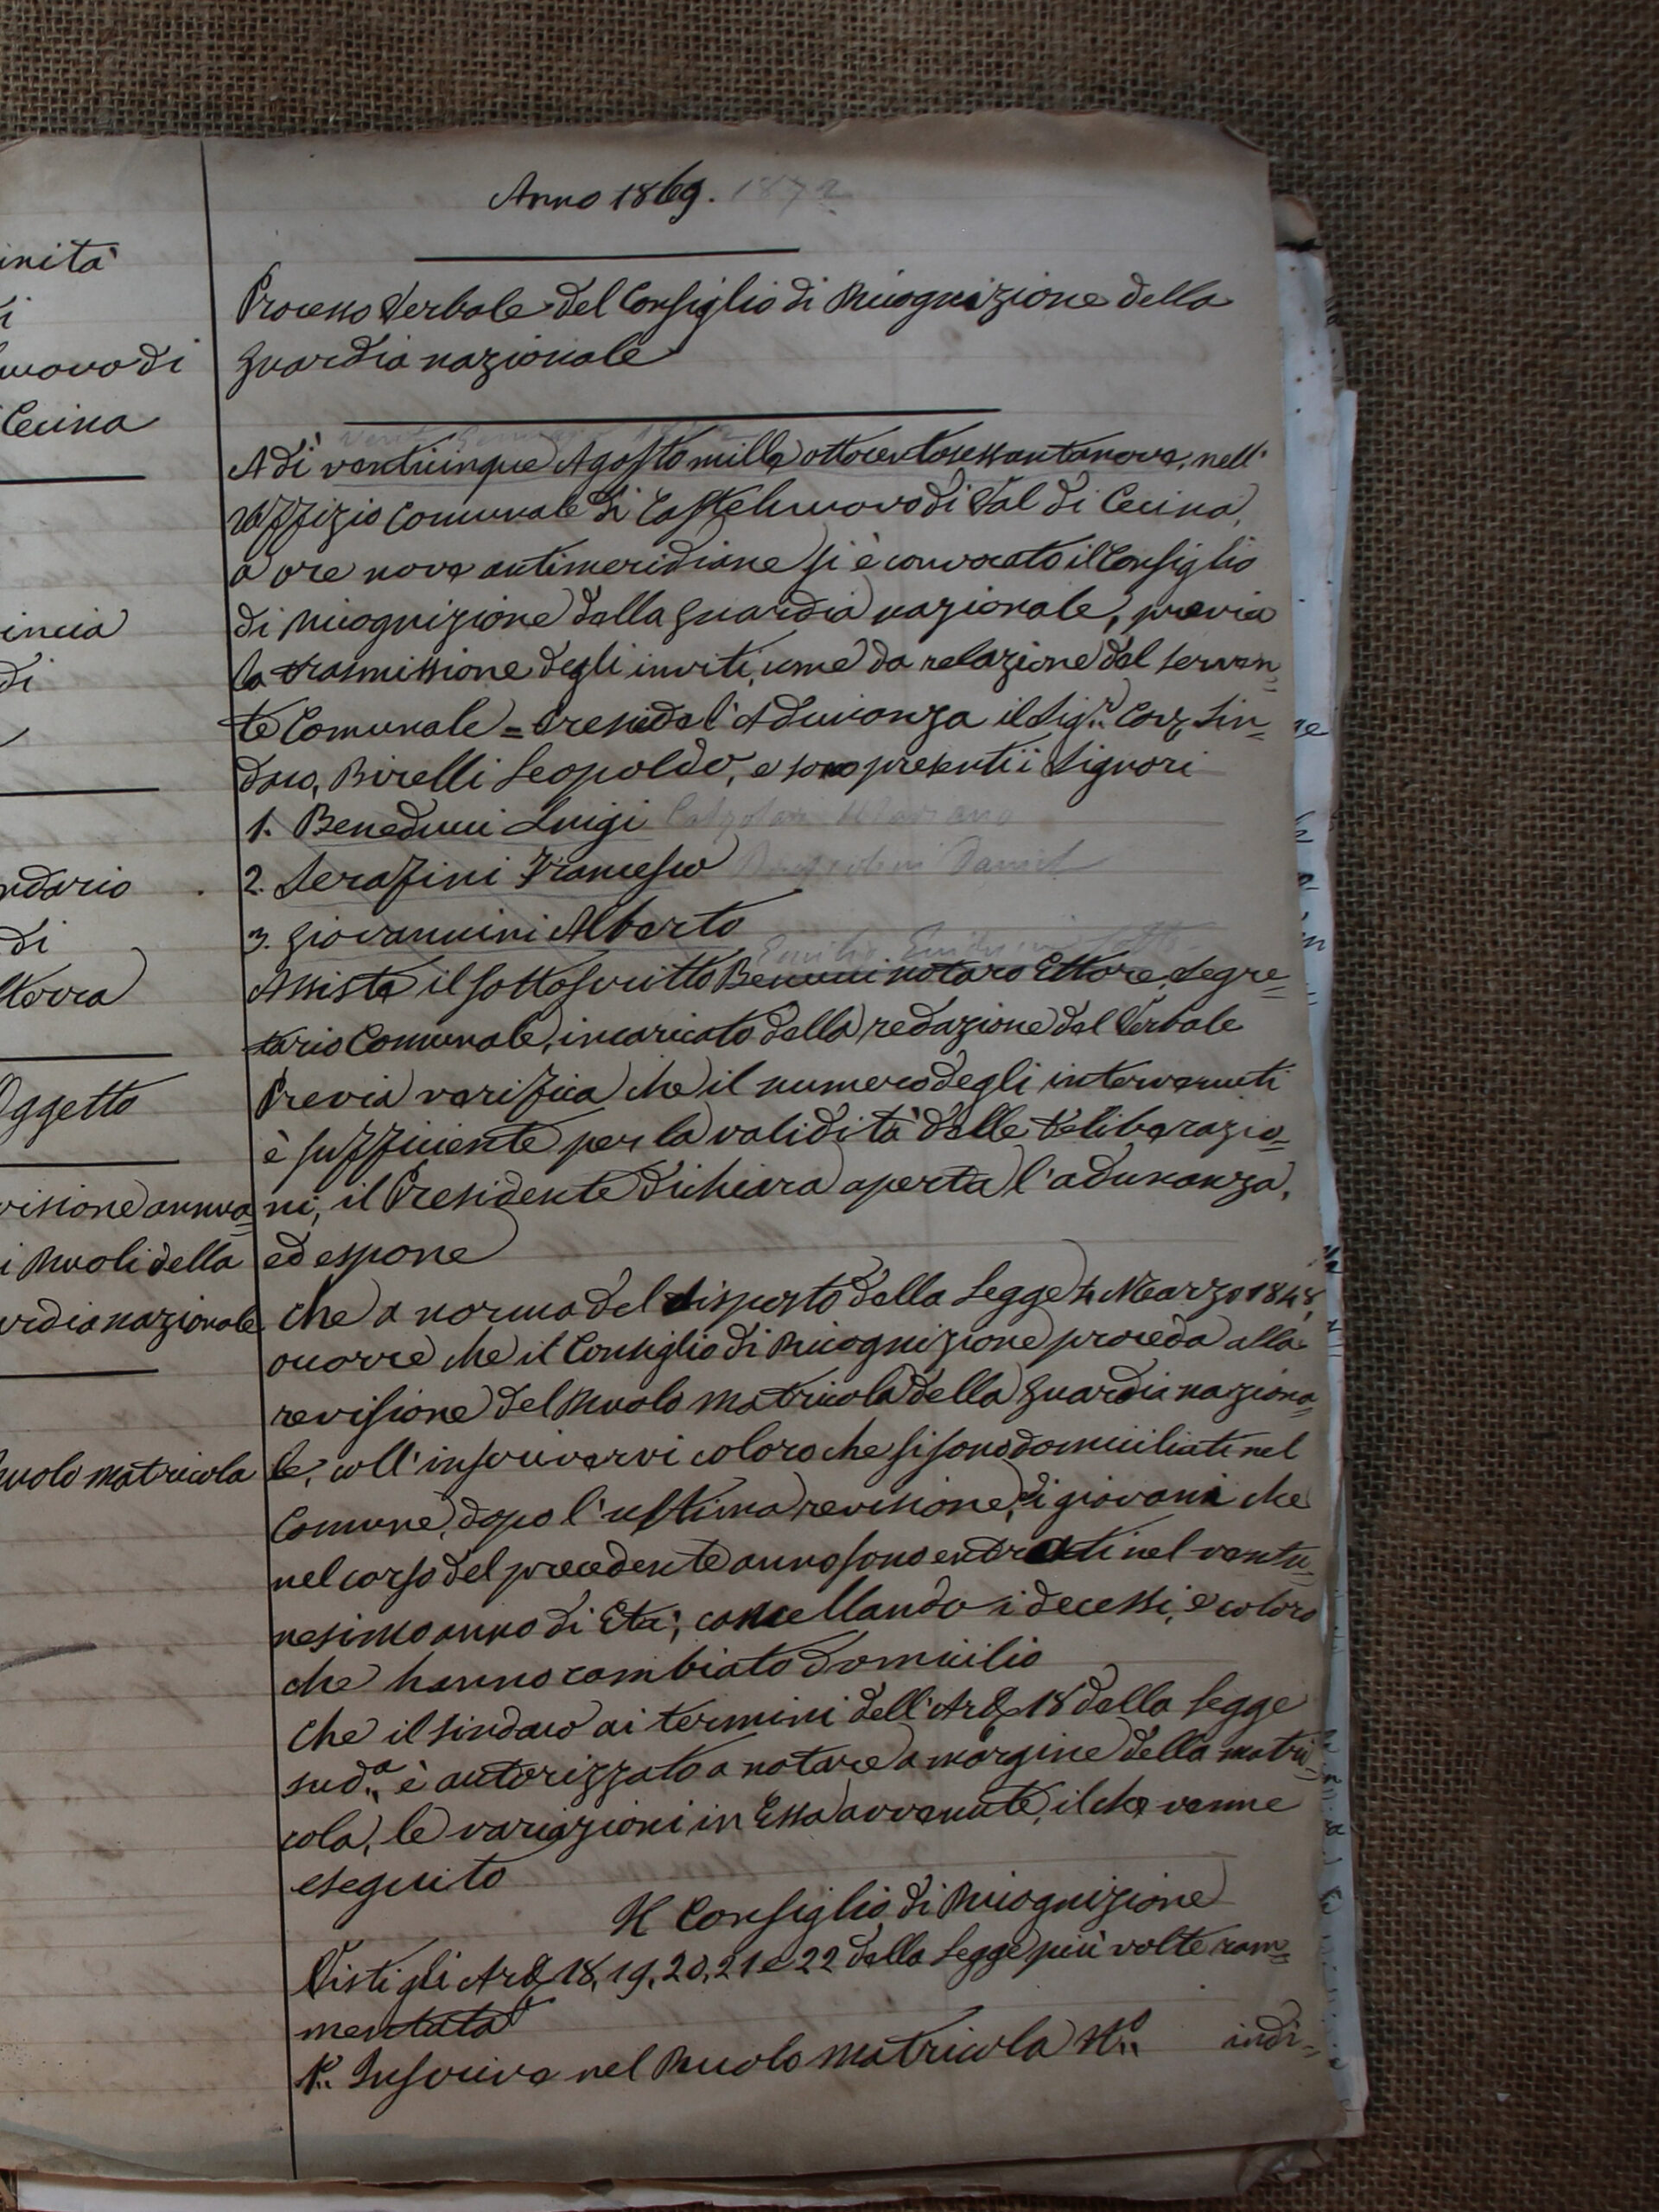 Anno 1869. 1872
Processo Verbale del Consiglio di Ricognizione della
Guardia nazionale
Adì venticinque Agosto mille ottocentosessantanove, nell'
Uffizio Comunale di Castelnuovo di Val di Cecina,
a ore nove antimeridiane si è convocato il Consiglio
di Ricognizione della Guardia nazionale, previa
la trasmissione degli inviti, come da relazione del serven=
te Comunale = Presiede l'Adunanza il Sig.r Cav. Sin=
daco, Birelli Leopoldo, e sono presenti i Signori
1. Beneducci Luigi
2. Serafini Francesco
3. Giovannini Alberto
Assiste il sottoscritto Benucci notaro Ettore, Segre=
tario Comunale, incaricato della redazione del Verbale
Previa verifica che il numero degli intervenuti
è sufficiente per la validità delle deliberazio=
ni, il Presidente dichiara aperta l'adunanza,
ed espone
Che a norma del disposto della Legge 4 Marzo 1848,
occorre che il Consiglio di Ricognizione proceda alla
revisione del Ruolo matricola della Guardia naziona=
le, coll'inscrivervi coloro che si sono domiciliati nel
Comune, dopo l'ultima revisione, i giovani che
nel corso del precedente anno sono entrati nel ventu=
nesimo anno di Età; cancellando i decessi, e coloro
che hanno cambiato domicilio
Che il Sindaco ai termini dell'Art. 18 della Legge
sud.a è autorizzato a notare a margine della matri=
cola, le variazioni in Essa avvenute, il che venne
eseguito
Il Consiglio di Ricognizione
Visti gli Art. 18, 19, 20, 21 e 22 della Legge più volte ram=
mentata
1.° Inscrive nel Ruolo matricola N.° indi=
inità
i
nuovo di
Cecina
incia
di
ndario
di
lterra
Oggetto
visione annua
i Ruoli della
ardia nazionale
uolo matricola